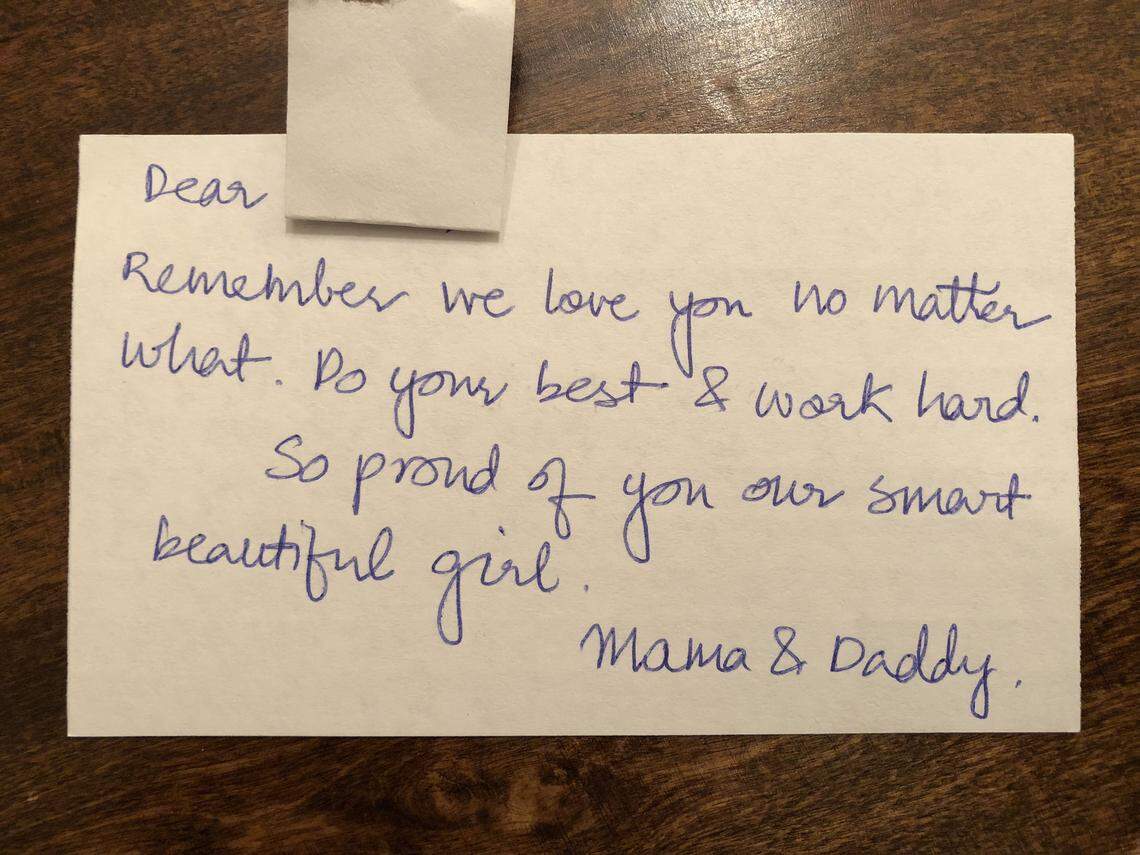 Dear
Remember we love you no matter
what. Do your best & work hard.
So proud of you our smart
beautiful girl.
Mama & Daddy.